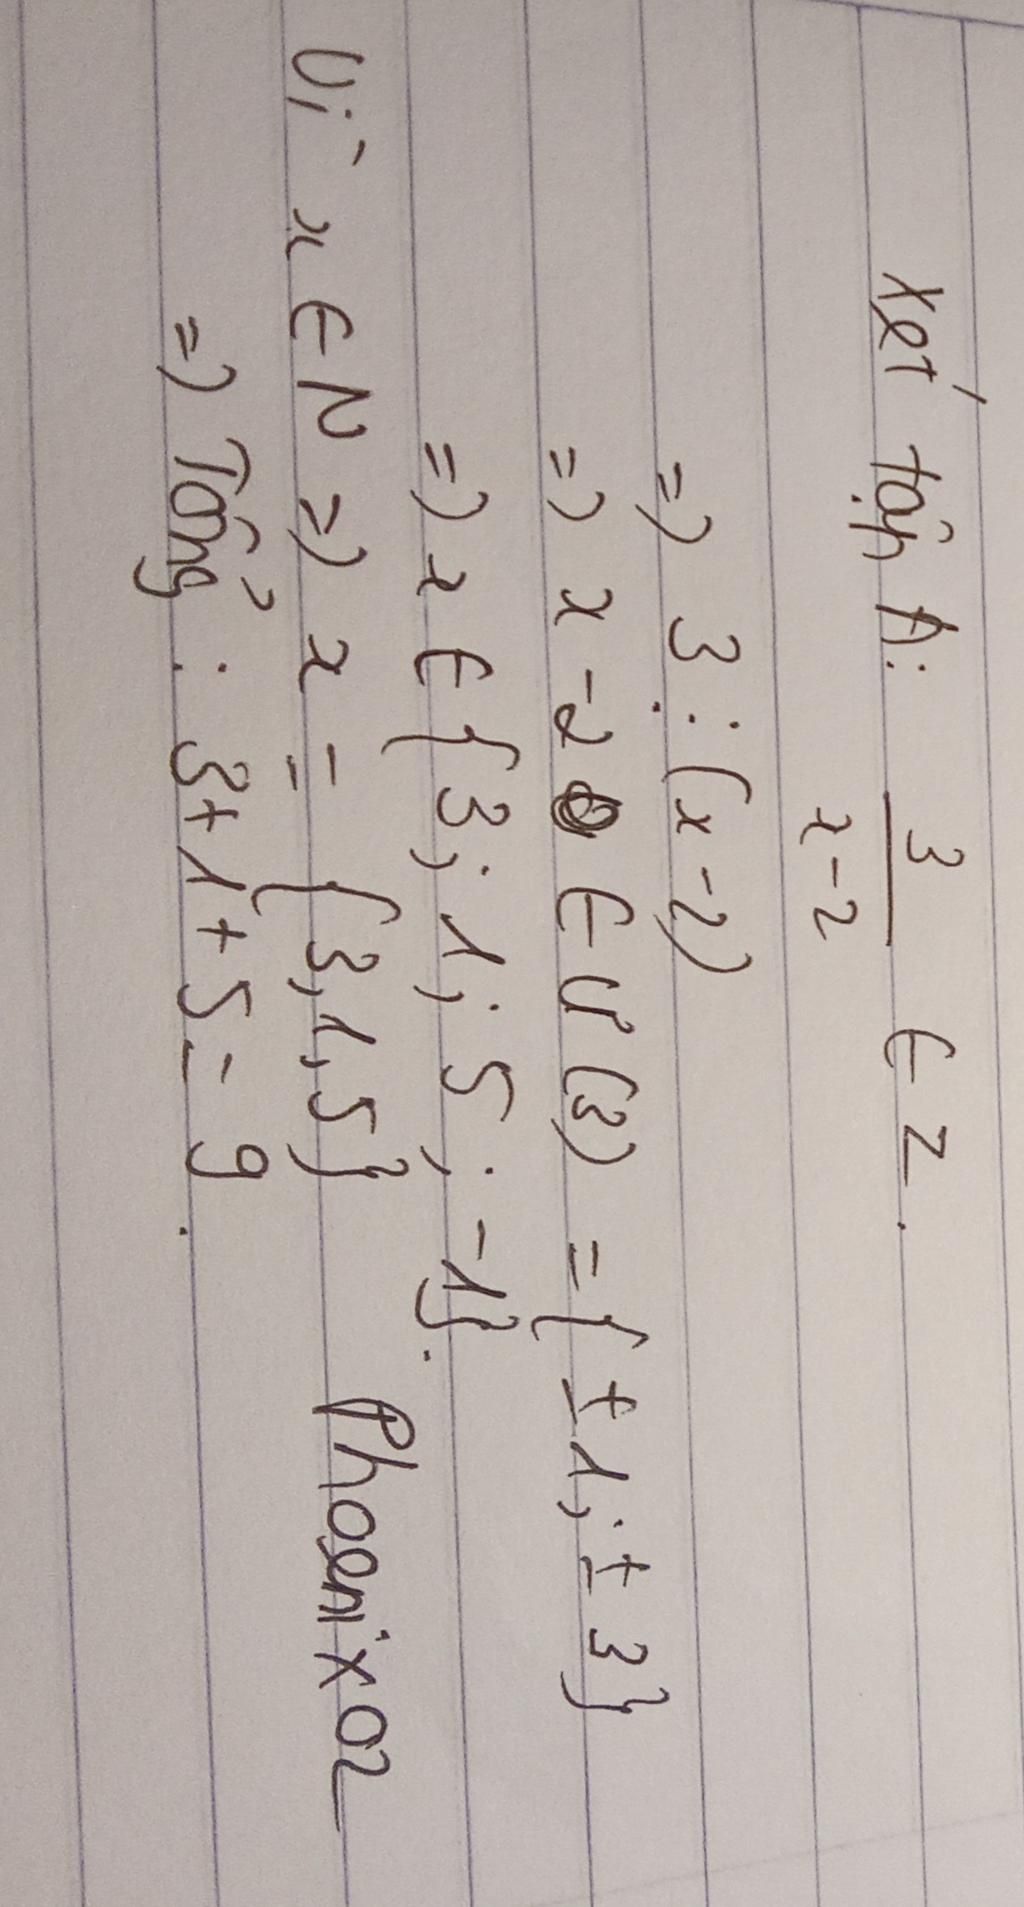 Xét tập A: 3/x-2 ∈ Z.
=> 3 ⋮ (x-2)
=> x-2 ∈ Ư(3) = {±1; ±3}
=> x ∈ {3; 1; 5; -1}.
Vì x ∈ N => x = {3, 1, 5}
=> Tổng: 3+1+5 = 9.
Phoenix02